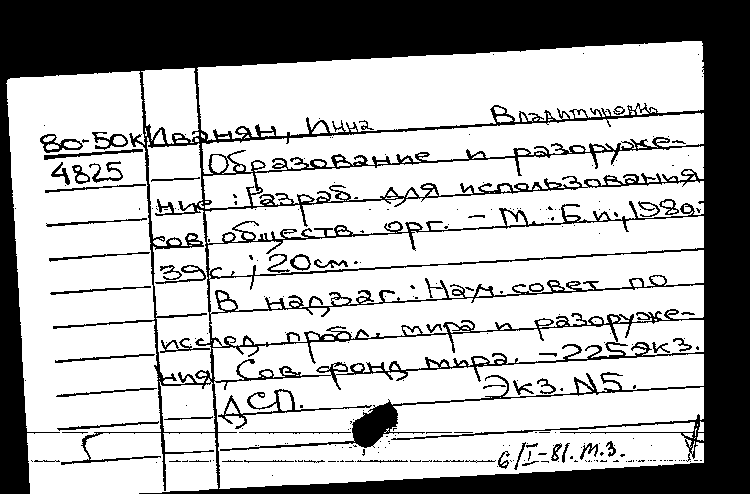 80-50к Иванян, Инна Владимировна
4825 Образование и разоруже-
ние : Разраб. для использования
сов. обществ. орг. – М. : Б. и., 1980.
39 с. ; 20 см.
В надзаг. : Науч. совет по
исслед. пробл. мира и разоруже-
ния, Сов. фонд мира. – 225 экз.
ДСП. Экз. N 5.
6/I-81. м.з.